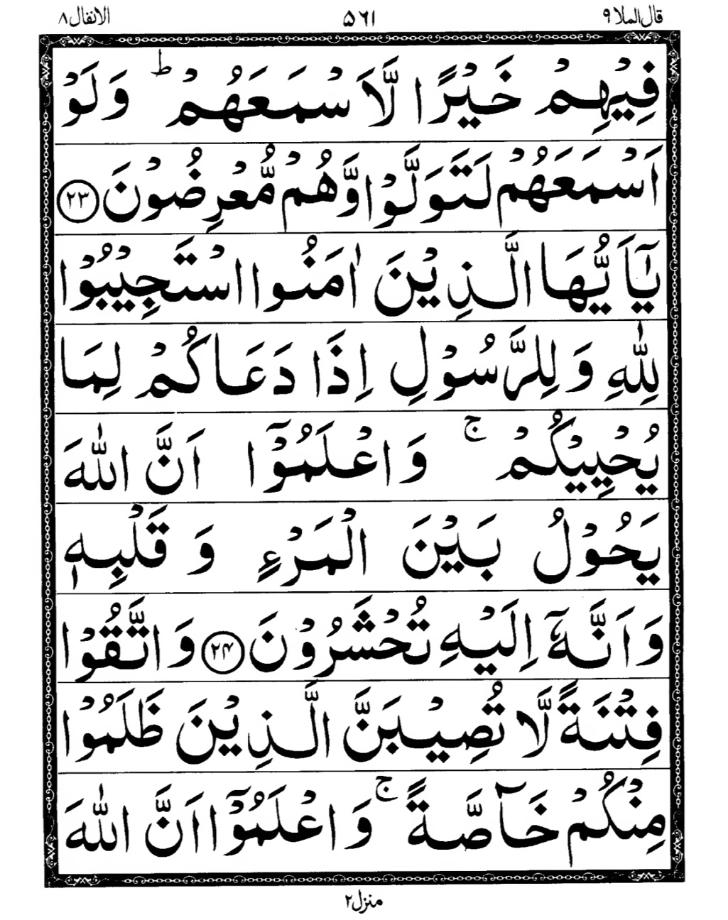 قال الملا ۹ ۵۶۱ الانفال ۸
فِيْهِمْ خَيْرًا لَّاَ سْمَعَهُمْ ؕ وَلَوْ
اَسْمَعَهُمْ لَتَوَلَّوْا وَّهُمْ مُّعْرِضُوْنَ ﴿۲۳﴾
يٰۤاَ يُّهَا الَّذِيْنَ اٰمَنُوا اسْتَجِيْبُوْا
لِلّٰهِ وَ لِلرَّسُوْلِ اِذَا دَعَاكُمْ لِمَا
يُحْيِيْكُمْ ۚ وَاعْلَمُوْۤا اَنَّ اللّٰهَ
يَحُوْلُ بَيْنَ الْمَرْءِ وَ قَلْبِهٖ
وَاَنَّهٗۤ اِلَيْهِ تُحْشَرُوْنَ ﴿۲۴﴾ وَاتَّقُوْا
فِتْنَةً لَّا تُصِيْبَنَّ الَّذِيْنَ ظَلَمُوْا
مِنْكُمْ خَآصَّةً ۚ وَاعْلَمُوْۤا اَنَّ اللّٰهَ
منزل ۲